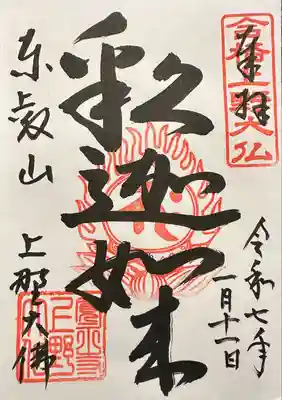 奉拝
令和七年
一月十一日
釈迦如来
東叡山
上野大佛